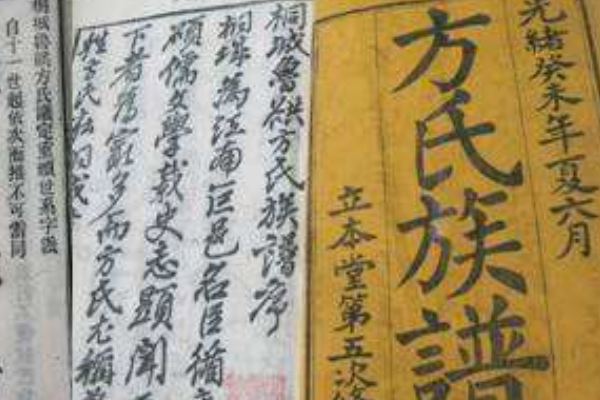 光緒癸未年夏六月
方氏族譜
立本堂第五次
桐城魯谼方氏族譜序
桐城為江南巨邑名臣循
碩儒文學載史志顯聞
下者為最多而方氏尤稱
姓方氏在桐城
桐城魯谼方氏議定重續世系字派
自十一世起依次而推不可雷同